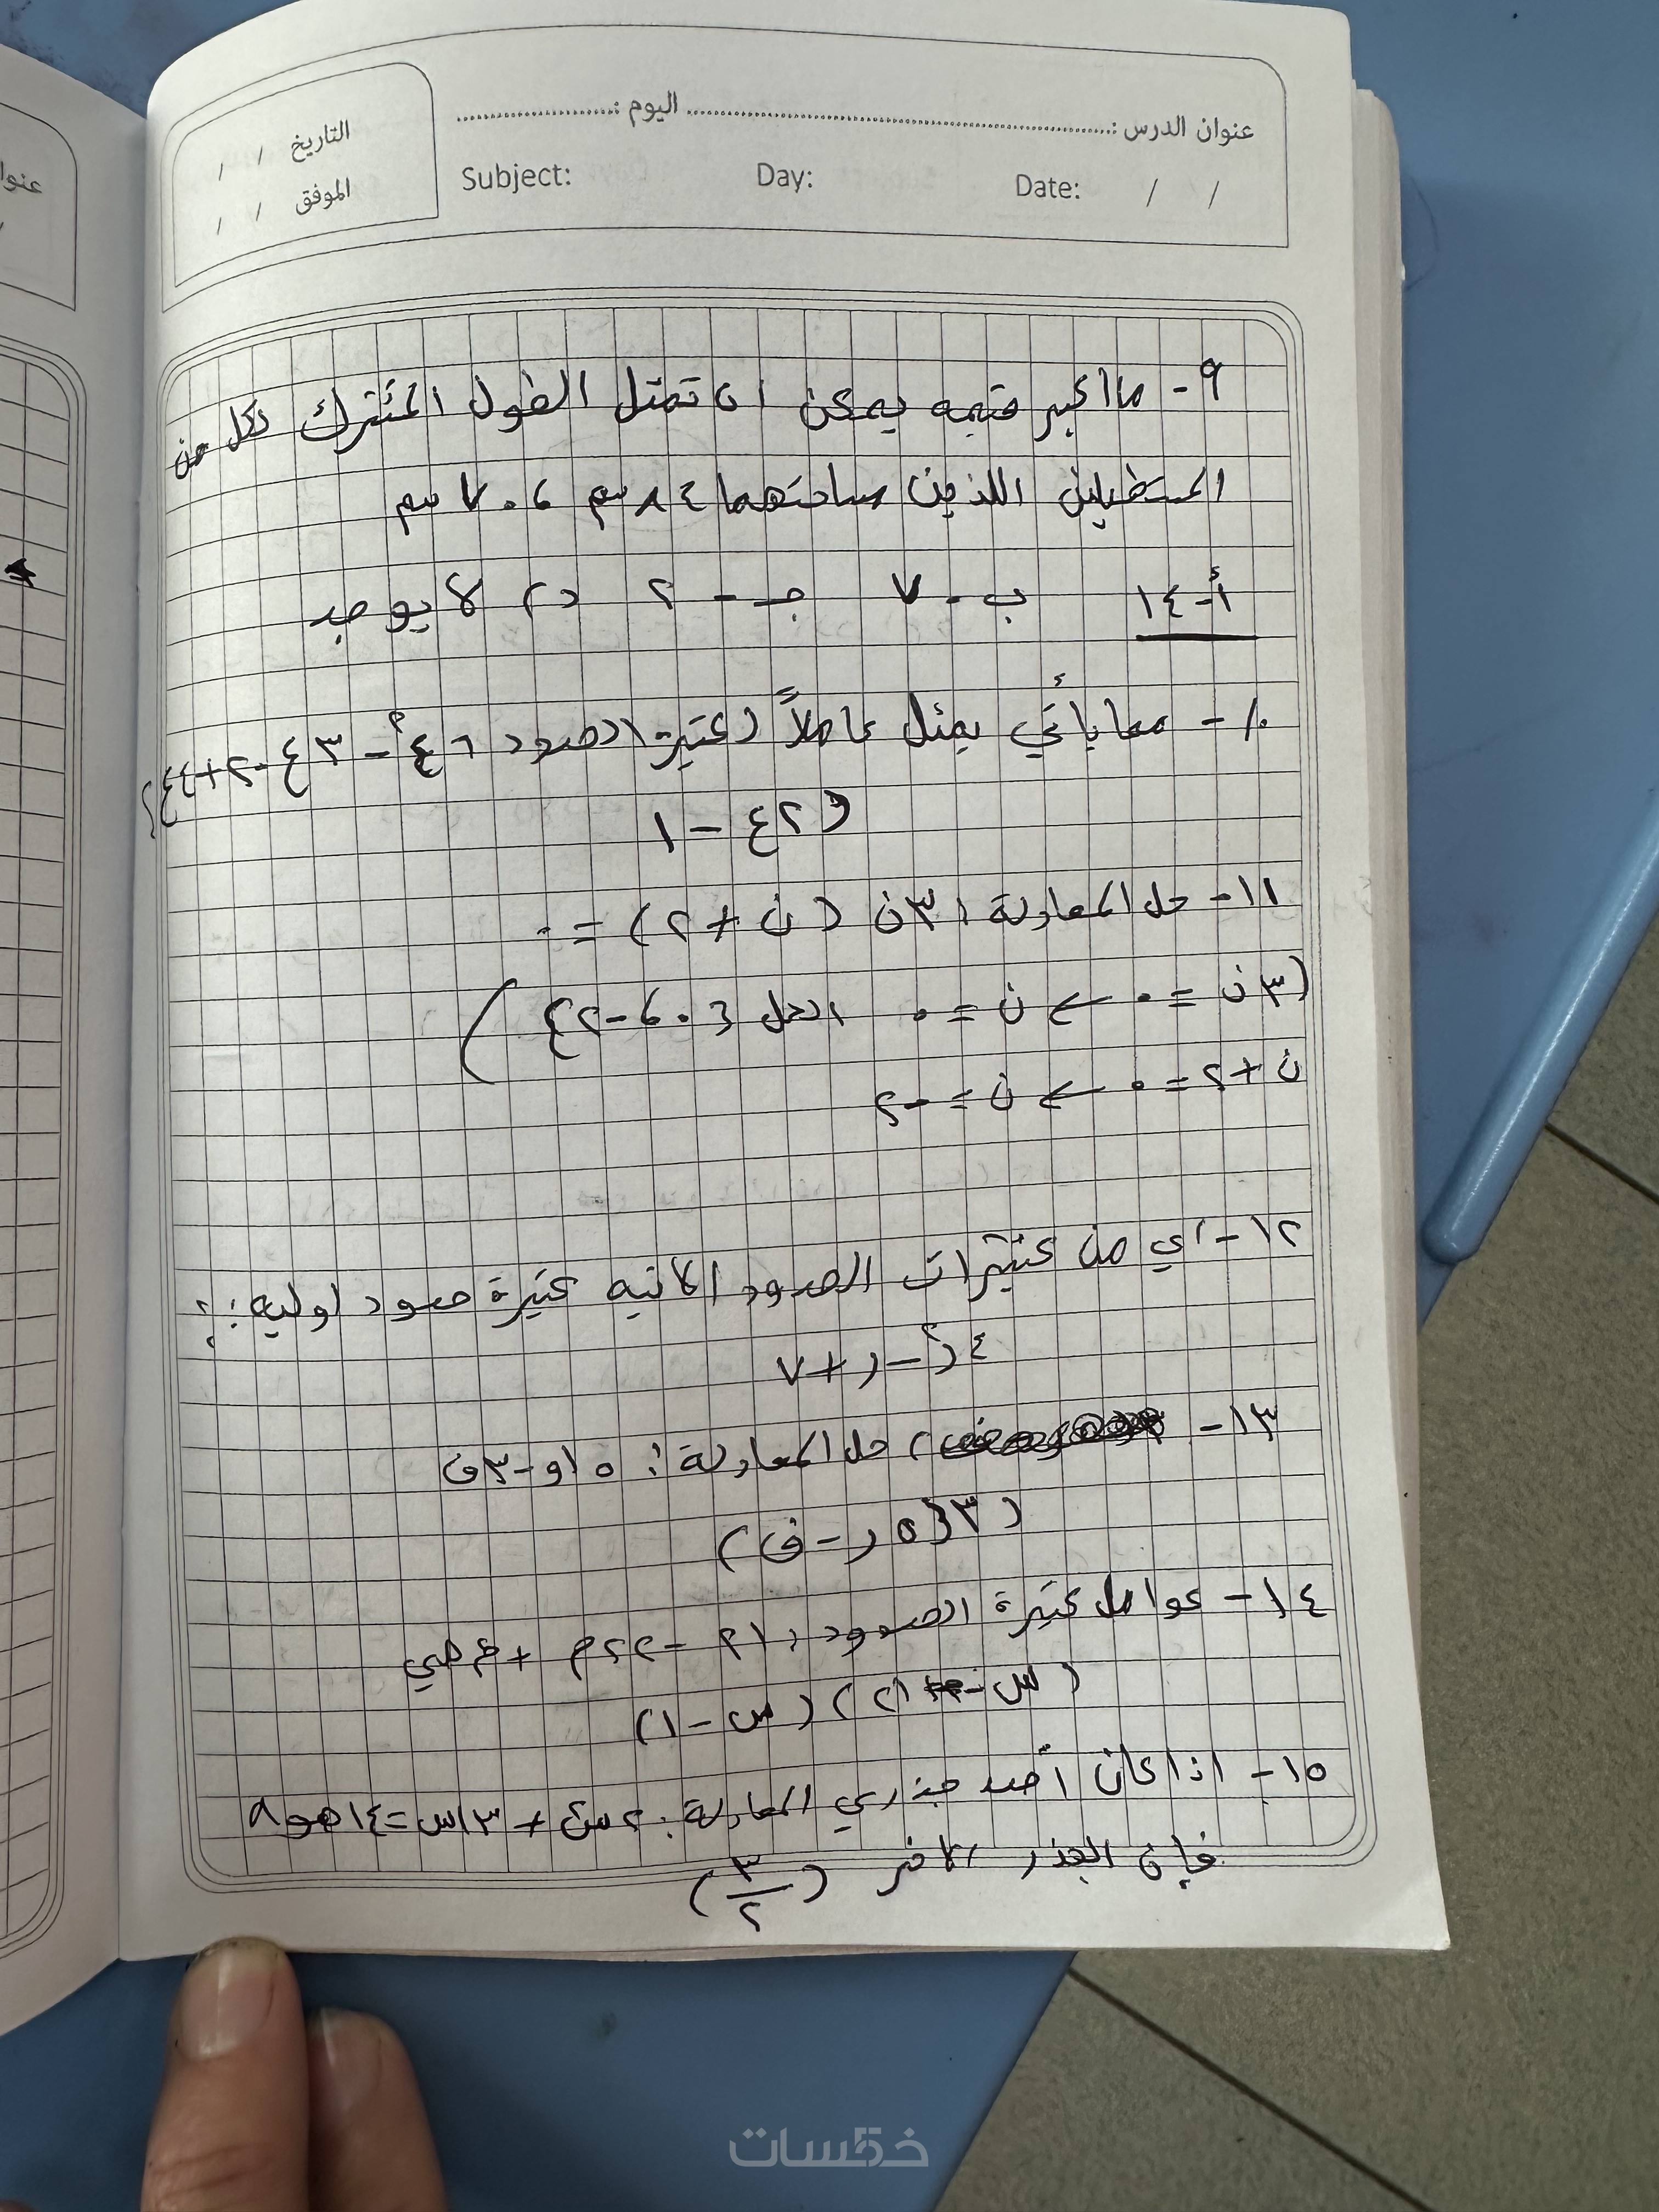 عنوان الدرس : اليوم :
Subject: Day: Date: / /
التاريخ / /
الموفق / /
٩- ما اكبر قيمه يمكن ان تمثل الطول المشترك لكل من
المستطيلين اللذين مساحتهما ٨٤ سم ، ٧٠ سم
أ- ١٤ ب- ٧ جـ - ٢ د) لا يوجد
١٠- مما يأتي يمثل عاملاً لكثيرة الحدود
(٢ع - ١
١١- حل المعادلة : ٣ن (ن + ٢) = ٠
(٣ن = ٠ ← ن = ٠ الحل {٠ ، -٢})
ن + ٢ = ٠ ← ن = -٢
١٢- أي من كثيرات الحدود الاتيه كثيرة حدود اوليه : ؟
٤ر٢ - ر + ٧
١٣- حل المعادلة : ١٥ر - ٣ف
(٣(٥ر - ف)
١٤- عوامل كثيرة الحدود : ٢١ - ٢٢م + م٢ هي
(س - ٢١) (س - ١)
١٥- اذا كان أحد جذري المعادلة : ٢س٢ + ١٣س = ٢٤ هو
فإن الجذر الاخر (٣/٢)
خمسات